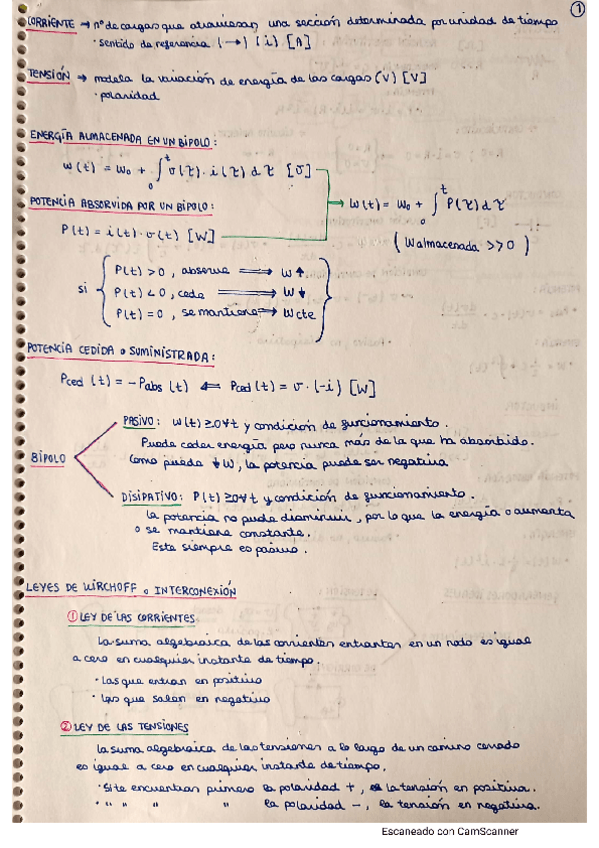 ①
CORRIENTE → nº de cargas que atraviesan una sección determinada por unidad de tiempo
· sentido de referencia (→) (i) [A]
TENSIÓN → modela la variación de energía de las cargas (V) [V]
· polaridad
ENERGÍA ALMACENADA EN UN BIPOLO:
w(t) = w₀ + ∫₀ᵗ v(τ)· i(τ) dτ [J]
POTENCIA ABSORVIDA POR UN BIPOLO:
→ w(t) = w₀ + ∫₀ᵗ P(τ) dτ
P(t) = i(t)· v(t) [W]
( W almacenada >> 0 )
si
P(t) > 0 , absorve ⟹ W↑
P(t) < 0, cede ⟹ W↓
P(t) = 0 , se mantiene ⟹ W cte
POTENCIA CEDIDA o SUMINISTRADA:
Pced (t) = -Pabs (t) ⟸ Pced(t) = v· (-i) [W]
BIPOLO
PASIVO: W(t) ≥ 0 ∀t y condición de funcionamiento.
Puede ceder energía pero nunca más de la que ha absorbido.
Como puede ↓W, la potencia puede ser negativa
DISIPATIVO: P(t) ≥ 0 ∀t y condición de funcionamiento.
La potencia no puede disminuir, por lo que la energía o aumenta
o se mantiene constante.
Este siempre es pasivo.
LEYES DE KIRCHOFF o INTERCONEXIÓN
① LEY DE LAS CORRIENTES
La suma algebraica de las corrientes entrantes en un nodo es igual
a cero en cualquier instante de tiempo.
· Las que entran en positivo
· Las que salen en negativo
② LEY DE LAS TENSIONES
La suma algebraica de las tensiones a lo largo de un camino cerrado
es igual a cero en cualquier instante de tiempo.
· Si te encuentras primero la polaridad +, la tensión en positiva.
· " " " " la polaridad -, la tensión en negativa.
Escaneado con CamScanner